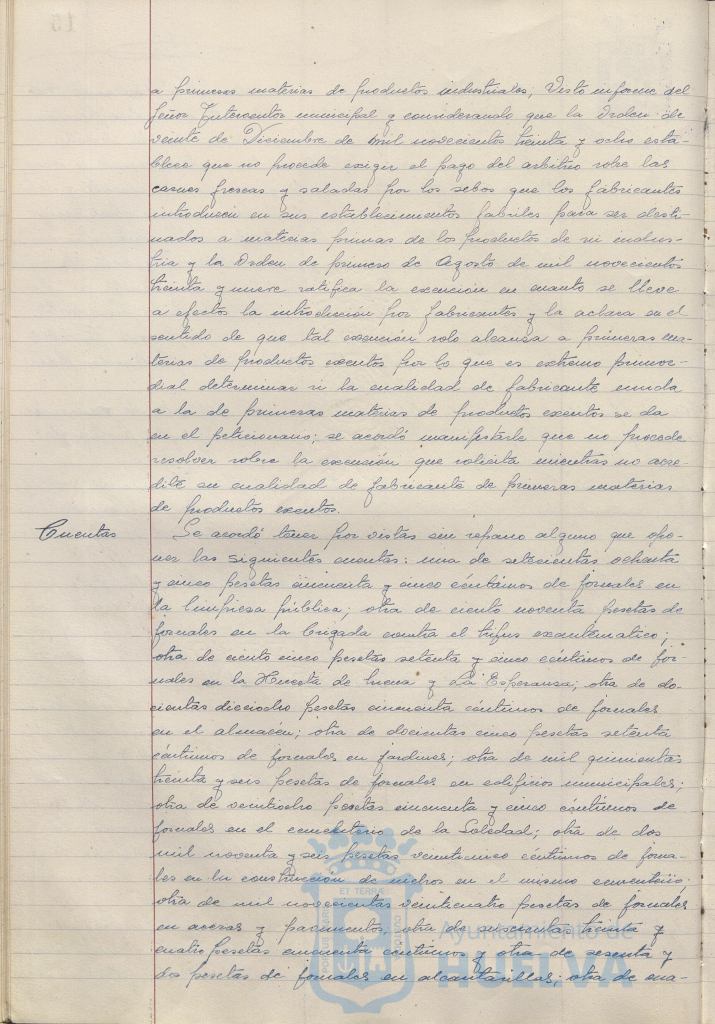 a primeras materias de productos industriales; Visto informe del
Señor Interventor municipal y considerando que la Orden de
veinte de Diciembre de mil novecientos treinta y ocho esta-
blece que no procede exigir el pago del arbitrio sobre las
carnes frescas y saladas por los sebos que los fabricantes
introducen en sus establecimientos fabriles para ser desti-
nados a materias primas de los productos de su indus-
tria y la Orden de primero de Agosto de mil novecientos
treinta y nueve ratifica la exención en cuanto se lleve
a efectos la introducción por fabricantes y la aclara en el
sentido de que tal exención solo alcanza a primeras ma-
terias de productos exentos por lo que es extremo primor-
dial determinar si la cualidad de fabricante unida
a la de primeras materias de productos exentos se da
en el peticionario; se acordó manifestarle que no procede
resolver sobre la exención que solicita mientras no acre-
dite su cualidad de fabricante de primeras materias
de productos exentos.
Cuentas
Se acordó tener por vistas sin reparo alguno que opo-
ner las siguientes cuentas: una de setecientas ochenta
y cinco pesetas cincuenta y cinco céntimos de jornales en
la limpieza pública; otra de ciento noventa pesetas de
jornales en la brigada contra el tifus exantematico;
otra de ciento cinco pesetas setenta y cinco céntimos de jor-
nales en la Huerta de Mena y La Esperanza; otra de do-
cientas dieciocho pesetas cincuenta céntimos de jornales
en el almacén; otra de docientas cinco pesetas setenta
céntimos de jornales en jardines; otra de mil quinientas
treinta y seis pesetas de jornales en edificios municipales;
otra de veintiocho pesetas cincuenta y cinco céntimos de
jornales en el cementerio de la Soledad; otra de dos
mil noventa y seis pesetas veinticinco céntimos de jorna-
les en la construcción de nichos en el mismo cementerio;
otra de mil novecientas veinticuatro pesetas de jornales
en aceras y pavimentos, otra de seiscientas treinta y
cuatro pesetas cincuenta céntimos y otra de sesenta y
dos pesetas de jornales en alcantarillas; otra de cua-
Ayuntamiento de
HUELVA